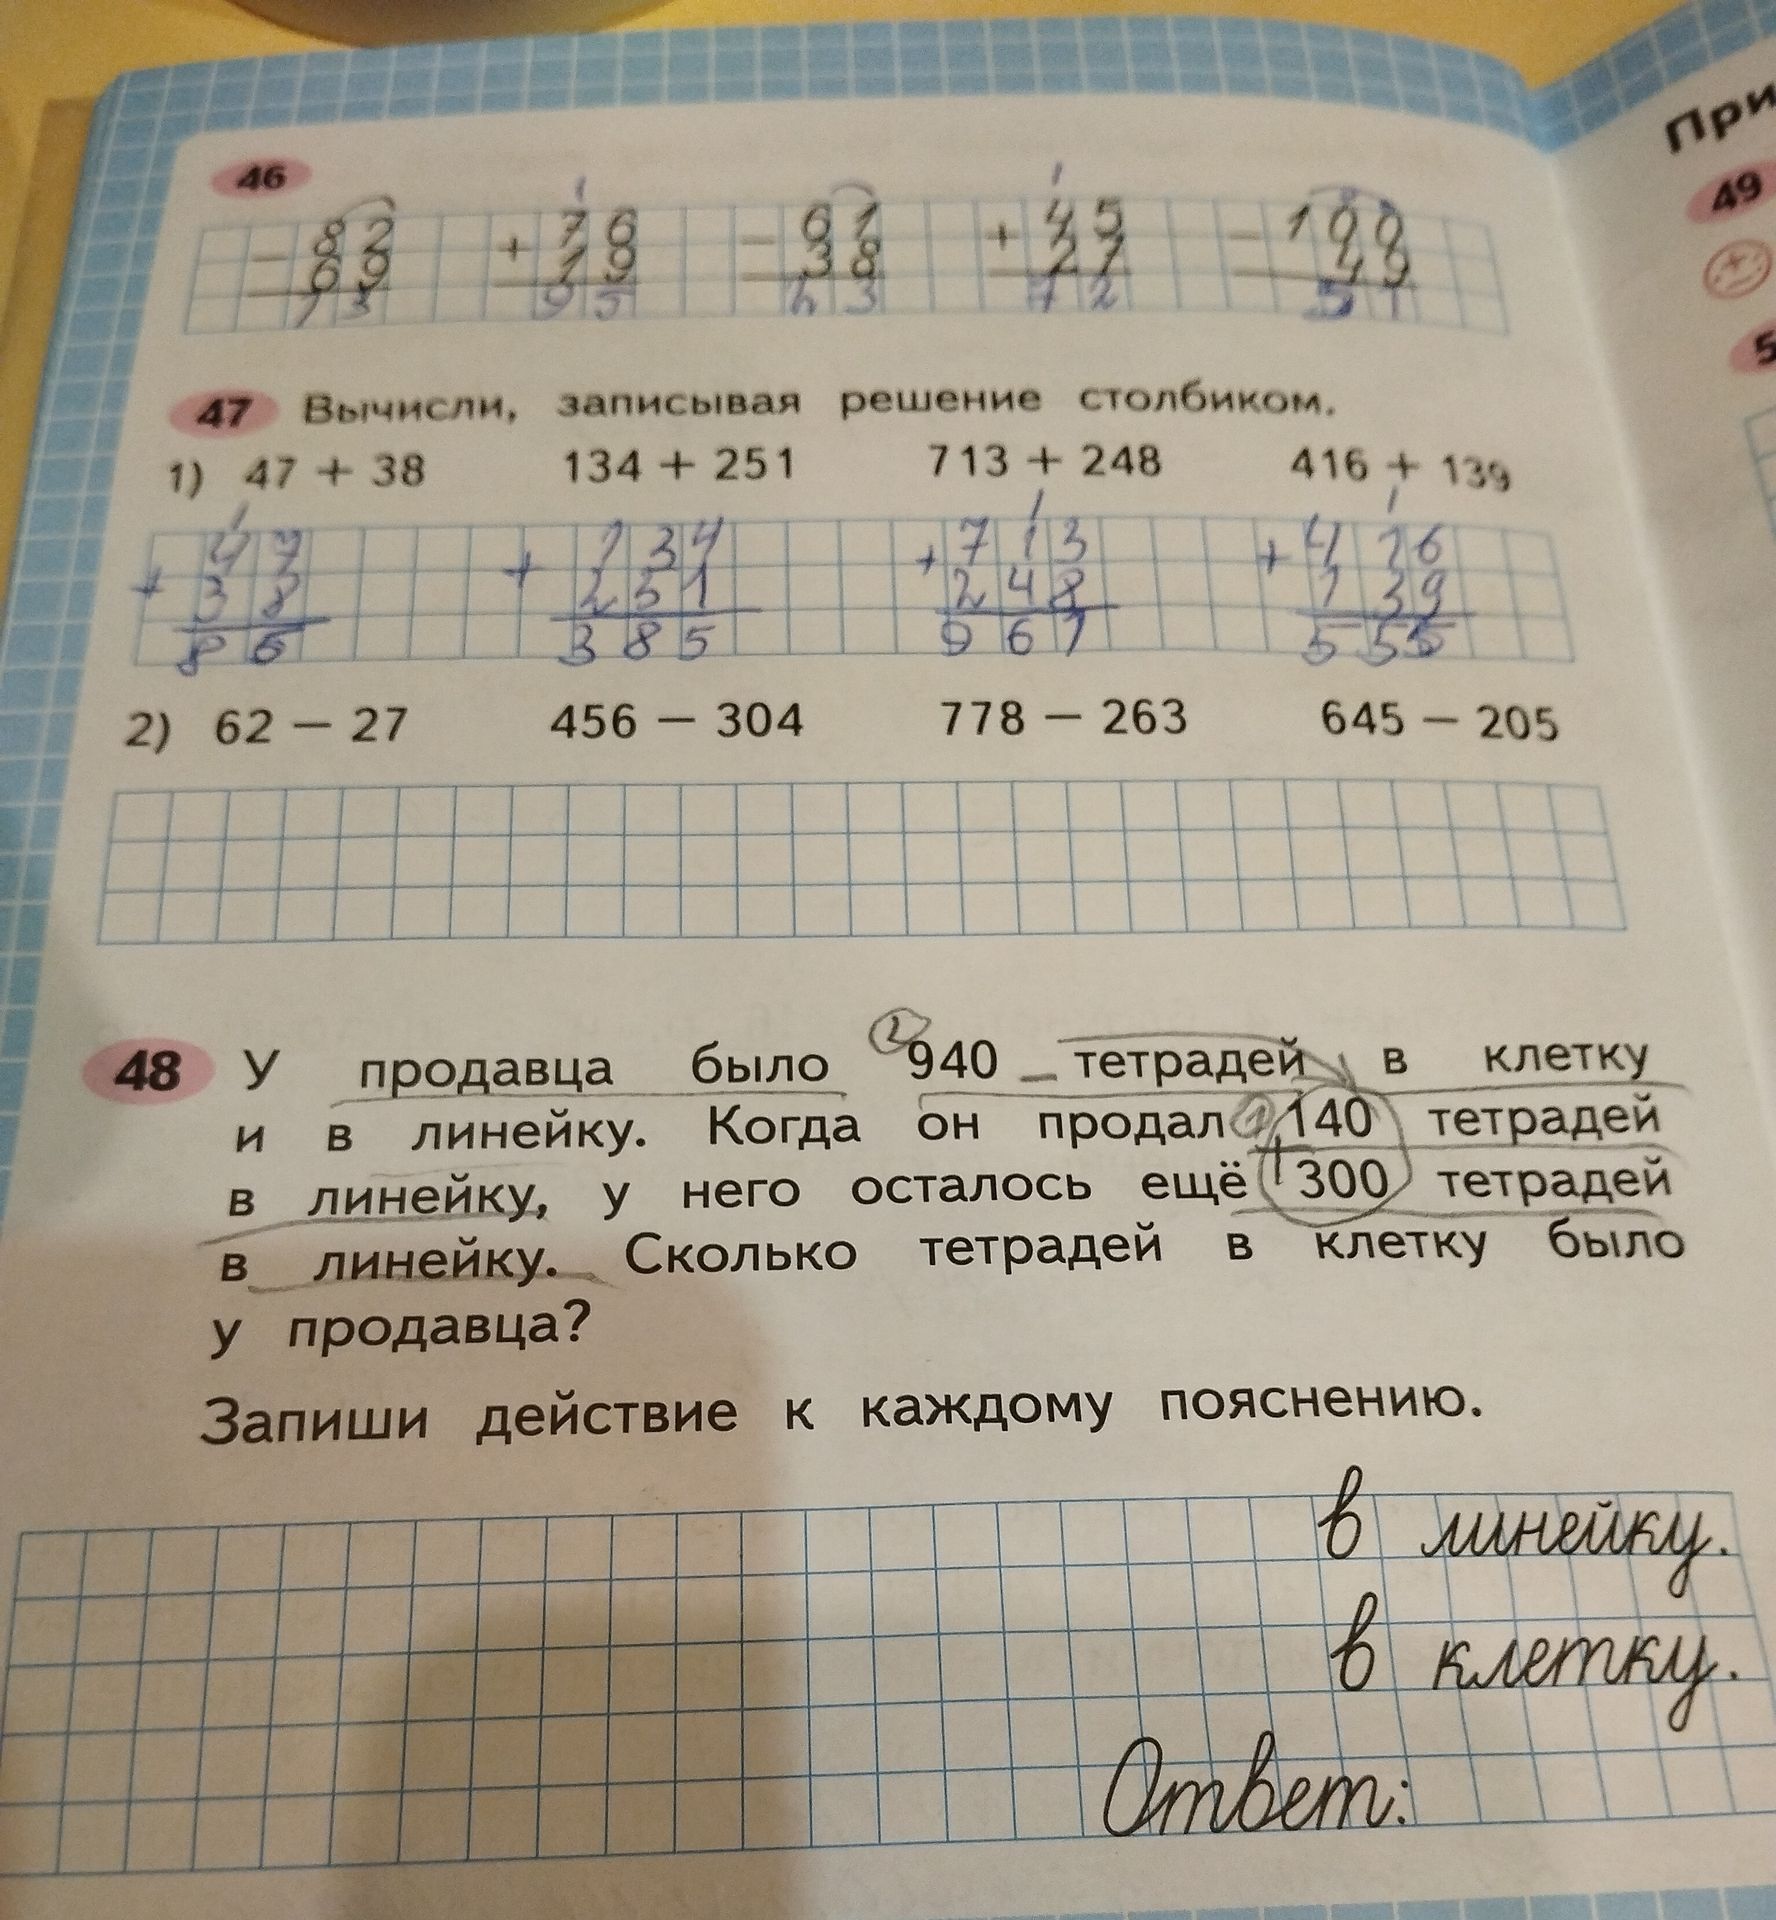 При
46
49
1 1
− 82 + 76 − 61 + 45 − 100
69 19 38 27 49
13 95 23 72 51
5
47 Вычисли, записывая решение столбиком.
1) 47 + 38 134 + 251 713 + 248 416 + 139
1 1 1
+ 47 + 134 + 713 + 416
38 251 248 139
85 385 961 555
2) 62 − 27 456 − 304 778 − 263 645 − 205
48 У продавца было 2 940 − тетрадей в клетку
и в линейку. Когда он продал 1 140 тетрадей
в линейку, у него осталось ещё + 300 тетрадей
в линейку. Сколько тетрадей в клетку было
у продавца?
Запиши действие к каждому пояснению.
в линейку.
в клетку.
Ответ: